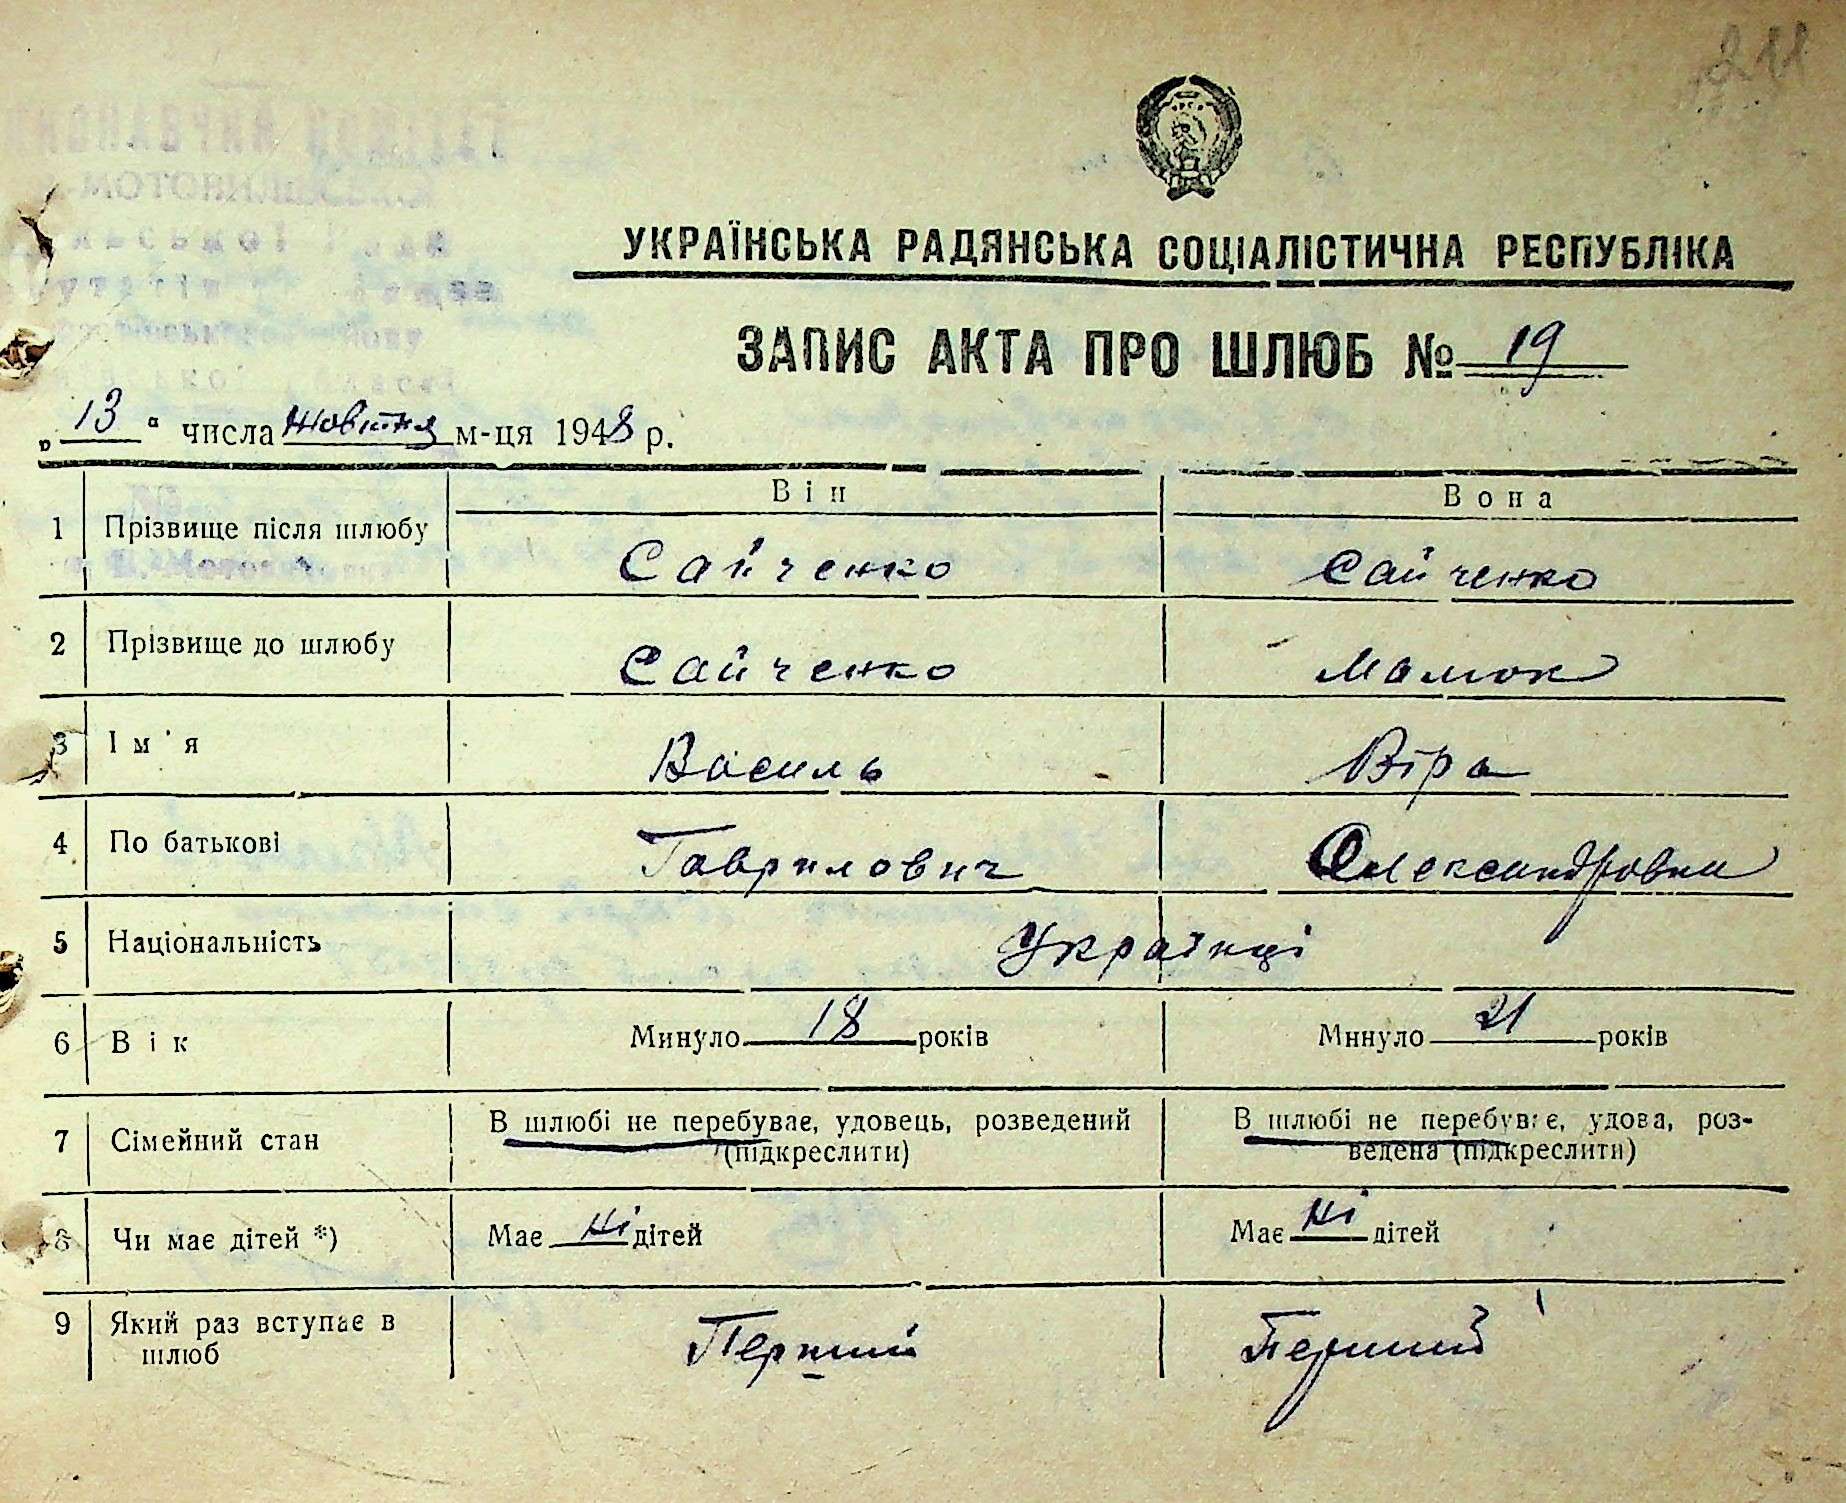 211
УКРАЇНСЬКА РАДЯНСЬКА СОЦІАЛІСТИЧНА РЕСПУБЛІКА
ЗАПИС АКТА ПРО ШЛЮБ № 19
„ 13 “ числа жовтня м-ця 1948 р.
Він Вона
1 Прізвище після шлюбу Сайченко Сайченко
2 Прізвище до шлюбу Сайченко Малюк
3 Ім'я Василь Віра
4 По батькові Гаврилович Олександровна
5 Національність Українці
6 Вік Минуло 18 років Минуло 21 років
7 Сімейний стан В шлюбі не перебуває, удовець, розведений В шлюбі не перебуває, удова, роз-
(підкреслити) ведена (підкреслити)
8 Чи має дітей *) Має ні дітей Має ні дітей
9 Який раз вступає в Перший Перший
шлюб